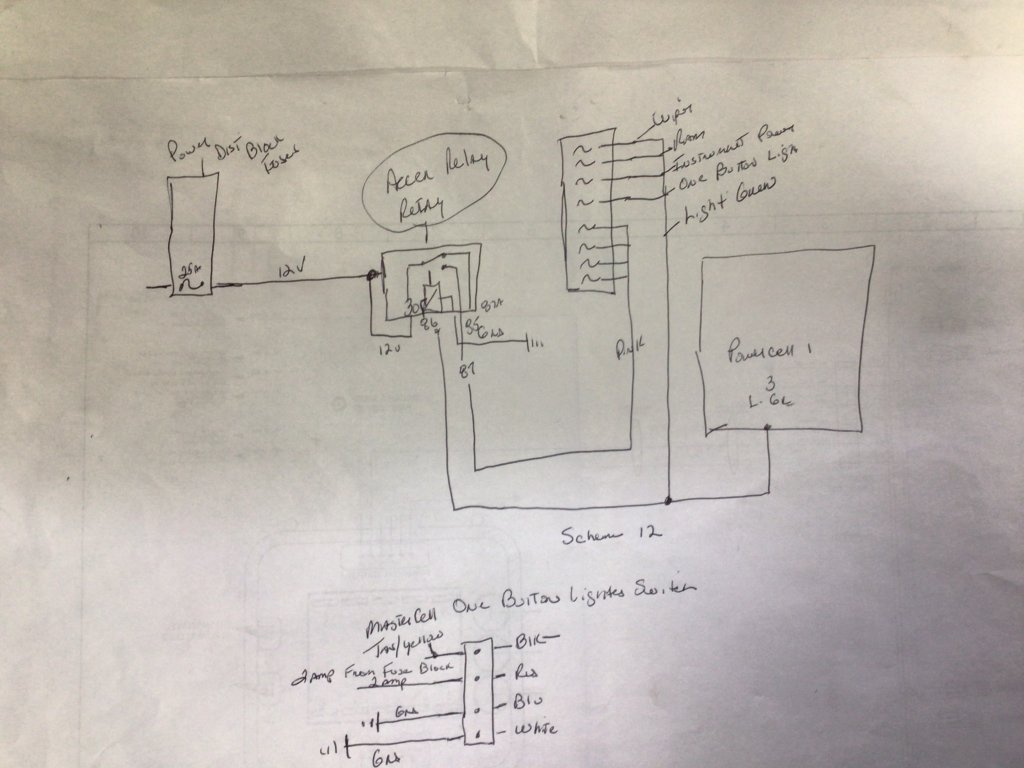 Power
Dist Block
Fused
25A
12V
Accer Relay
Relay
30
86
85
87A
Gnd
12V
87
Wiper
Instrument Power
One Button Light
Light Green
Pink
Powercell 1
3
L. Gr
Scheme 12
MasterCell One Button Lighted Switch
Tan/yellow
2 Amp From Fuse Block
2 Amp
Gnd
Gnd
Blk
Red
Blu
White